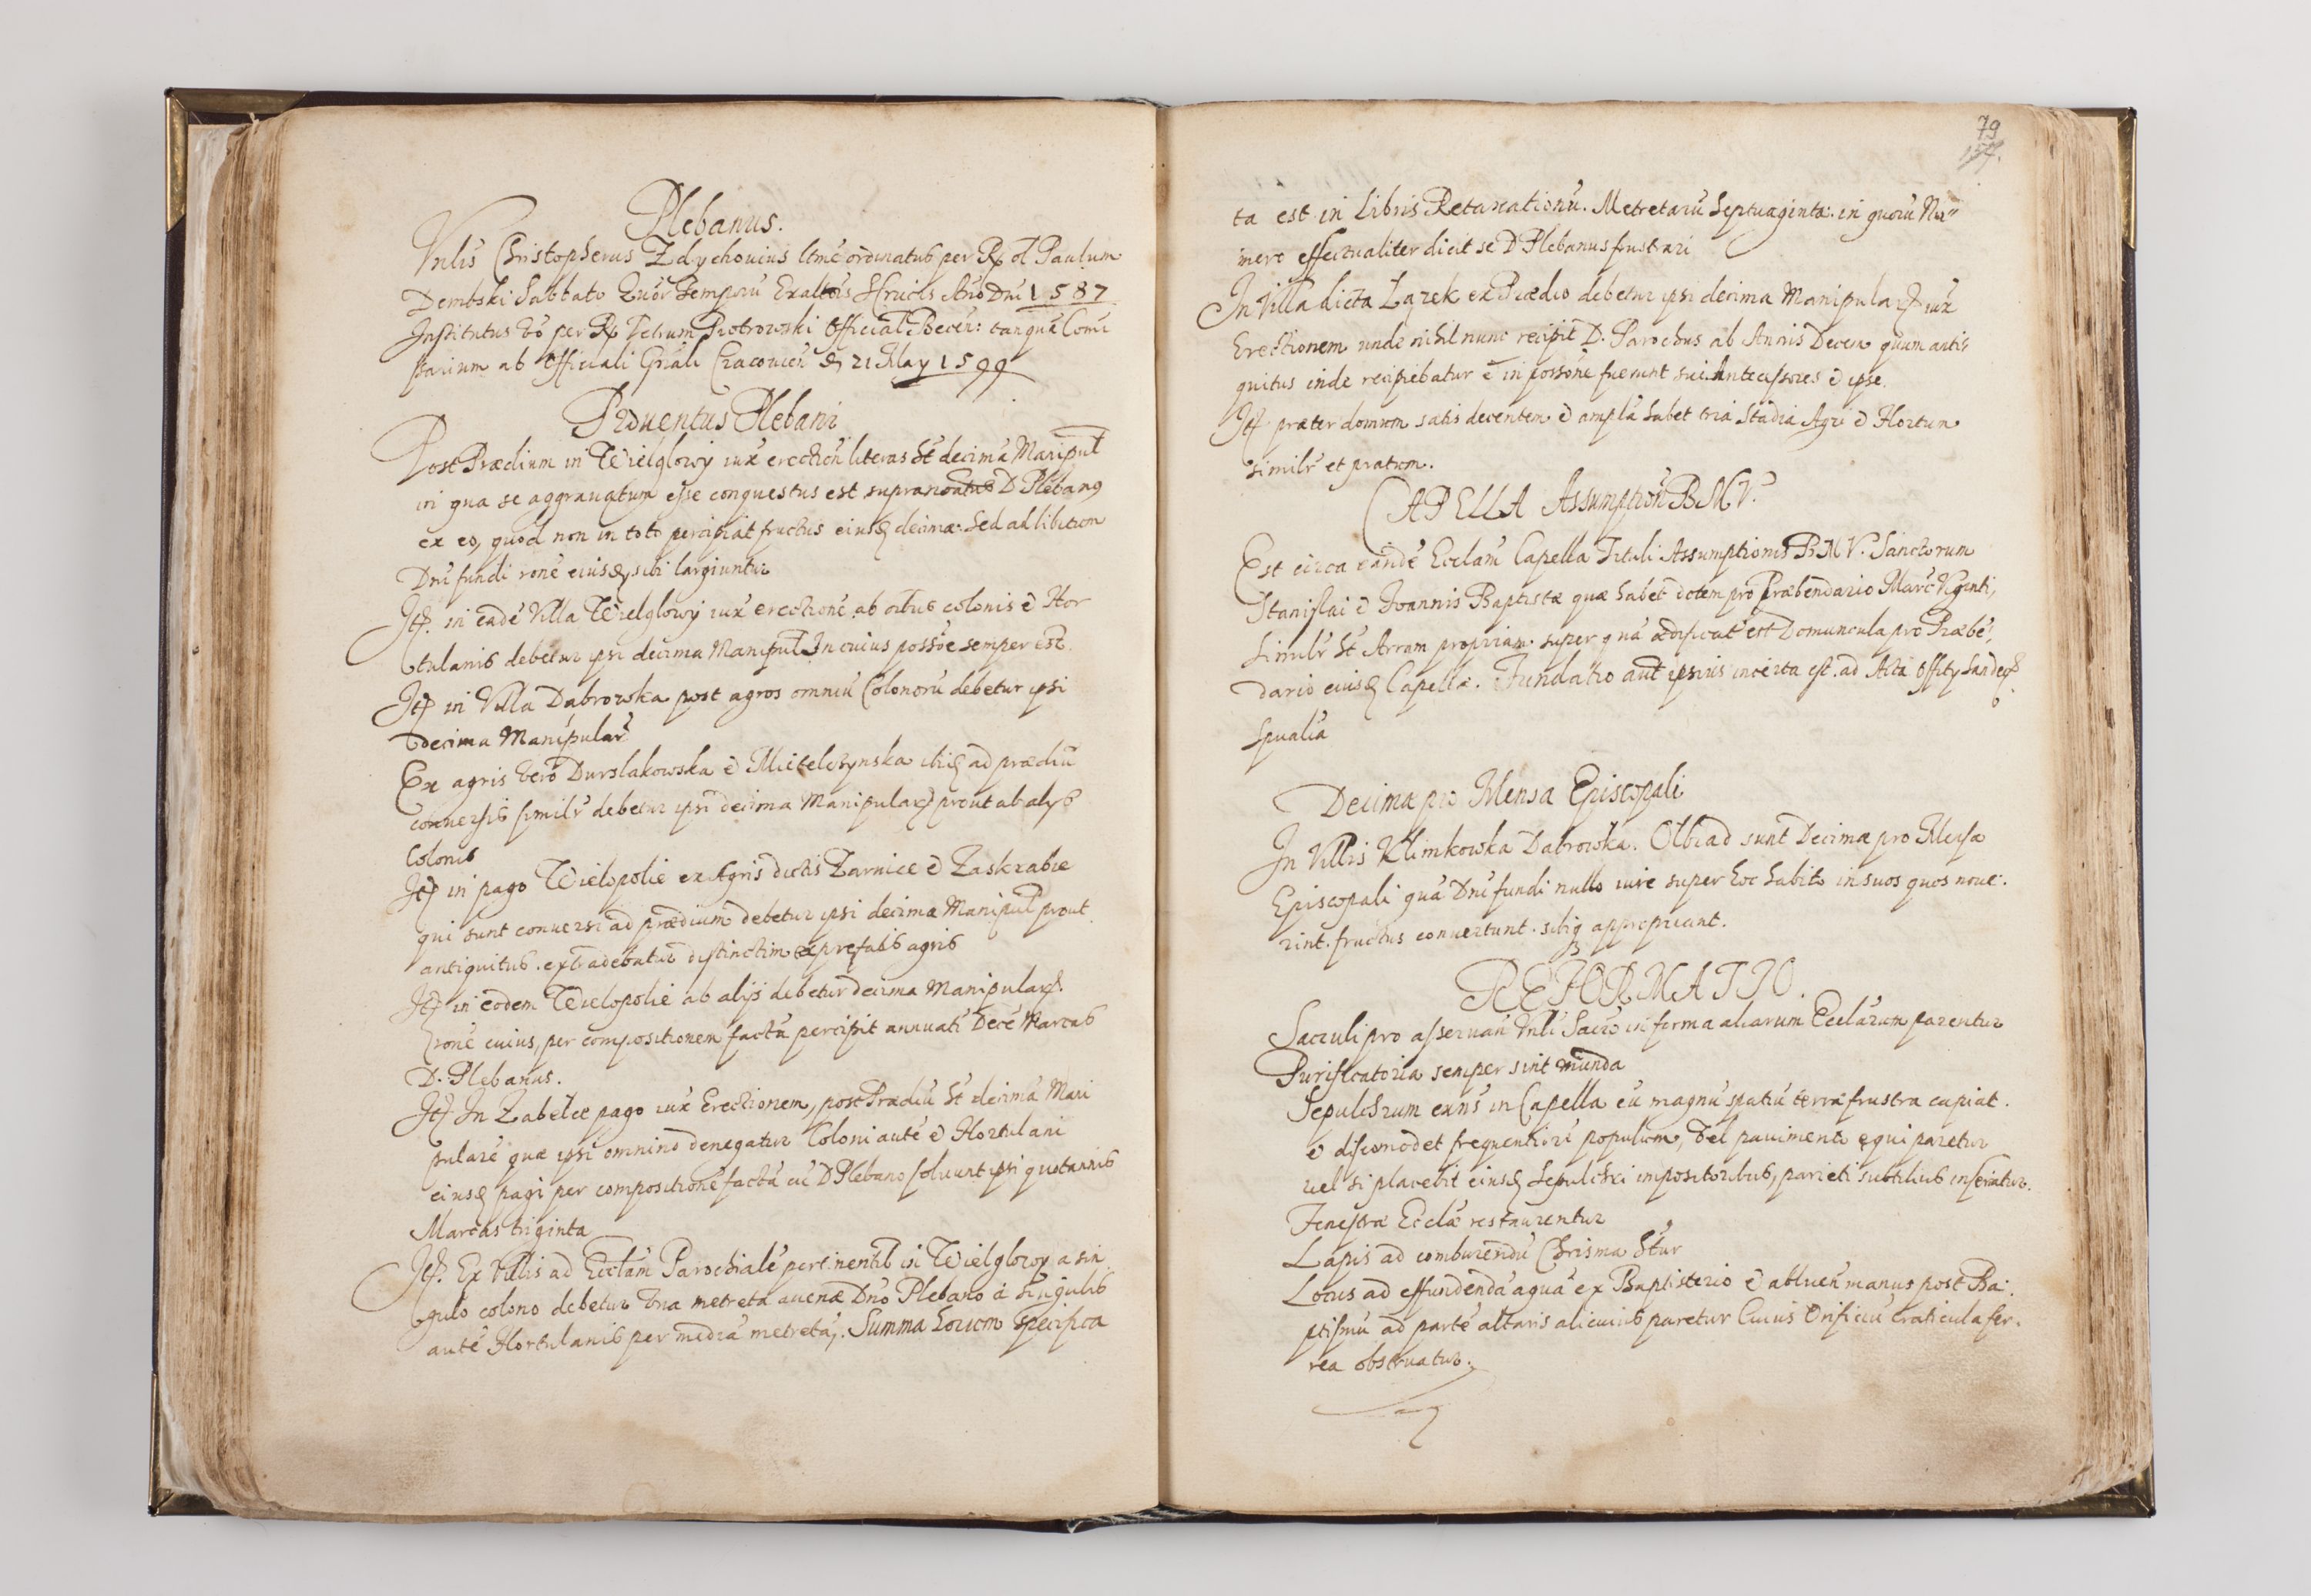 Plebanus.
Vnlis Christopherus Zdychouius ltme ordinatus per R. ol. Paulum
Dembski Sabbato Quor Temporu Exaltois S Crucis Ano Dni 1587
Institutus vo per R. Petrum Piotrowski Official Becen: tanqua Comi
ssarium ab Officiali Gnali Cracouien d. 21 May 1599
Prouentus Plebani
Post Prædium in Wielglowy iux erection literas ht decima Manipul
in qua se aggrauatum esse conquestus est supranoatus D Plebang
ex eo, quod non in toto percipiat fructus eiusd decimæ: Sed ad libitum
Dni fundi rone eiusd sibi largiuntur
It. in eade Villa Wielglowy iux erectione ab oibus colonis & Hor
tulanis debetur ipsi decima Manipul In cuius possoe semper est.
It in Villa Dabrowska post agros omniu Colonoru debetur ipsi
decima Manipular
Ex agris vero Durslakowska & Micelczynska ibid ad prædiu
conuersis similr debetur ipsi decima Manipular prout ab alys
Colonis
It in pago Wielopolie ex Agris dictis Zarnice & Zaskrabie
qui sunt conuersi ad prædium debetur ipsi decima Manipul prout
antiquitus. extradebatur distinctim ex prefatis agris
It in eodem Wielopolie ab alijs debetur decima Manipular.
rone cuius, per compositionem facta percipit annuati Dece Marcas
D. Plebanus.
It In Zabelce pago iux Erectionem, post Prædiu ht decima Mani
pulare quæ ipsi omnino denegatur Coloni aute & Hortulani
eiusd pagi per compositione facta cu D Plebano soluunt ipsi quotannis
Marcas triginta
It. Ex Villis ad Ecclam Parochiale pertinentib in Wielglowy a sin
gulo colono debetur vna metreta auenæ Dno Plebano a singulis
aute Hortulanis per media metreta,. Summa horum specifica
79
ta est in Libris Retaxationu. Metretaru Septuaginta: in quoru Nu"
mero effectualiter dicit se D Plebanus frustrari
In Villa dicta Lazek ex Prædio debetur ipsi decima Manipular iux
Erectionem unde nihil nunc recipit D. Parochus ab Annis Decem quum anti-
quitus inde recipiebatur & in possone fuerunt sui Antecessores & ipse.
It præter domum satis decentem & ampla habet tria Stadia Agri & Hortum
similr et pratum.
CAPELLA Assumption B M V.
Est circa eande Ecclam Capella Tituli Assumptionis B M V. Sanctorum
Stanislai & Ioannis Baptistæ quæ habet dotem pro Præbendario Marc Viginti,
Similr ht Arram propriam super qua ædificat est Domuncula pro Præbe,
dario eiusd Capellæ. Fundatio aut ipsius incerta est. ad Acta Offity Sandec
Spualia
Decimæ pro Mensa Episcopali
In Villis Klimkowska Dabrowska. Olbiad sunt Decimæ pro Mensa
Episcopali qua Dni fundi nullo iure super hoc habito in suos quos noue:
rint. fructus conuertunt. sibiq appropriant.
REFORMATIO.
Sacculi pro asseruan Vnli Sacro in forma aliarum Ecclarum parentur
Purificatoria semper sint munda
Sepulchrum exns in Capella cu magnu spatiu terræ frustra capiat.
& discomodet frequentiori populum, vel pavimento equi paretur
uel si placebit eiusd Sepulchri impositoribus, parieti subtilius inseratur.
Fenestræ Ecclæ restaurentur
Lapis ad comburendu Chrisma htur
Locus ad effundenda aqua ex Baptisterio & abluen manus post Ba:
ptismu ad parte altaris alicuius paretur Cuius Orificiu craticula fer.
rea obstruatur.